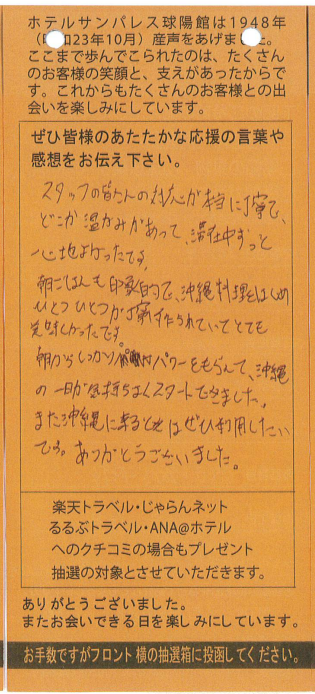 ホテルサンパレス球陽館は1948年
（昭和23年10月）産声をあげました。
ここまで歩んでこられたのは、たくさん
のお客様の笑顔と、支えがあったからで
す。これからもたくさんのお客様との出
会いを楽しみにしています。
ぜひ皆様のあたたかな応援の言葉や
感想をお伝え下さい。
スタッフの皆さんの対応が本当に丁寧で、
どこか温かみがあって、滞在中ずっと
心地よかったです。
朝ごはんも印象的で、沖縄料理をはじめ
ひとつひとつが丁寧に作られていてとても
美味しかったです。
朝からしっかりパワーをもらって、沖縄
の一日が気持ちよくスタートできました。
また沖縄に来るときはぜひ利用したい
です。ありがとうございました。
楽天トラベル・じゃらんネット
るるぶトラベル・ANA@ホテル
へのクチコミの場合もプレゼント
抽選の対象とさせていただきます。
ありがとうございました。
またお会いできる日を楽しみにしています。
お手数ですがフロント横の抽選箱に投函してください。